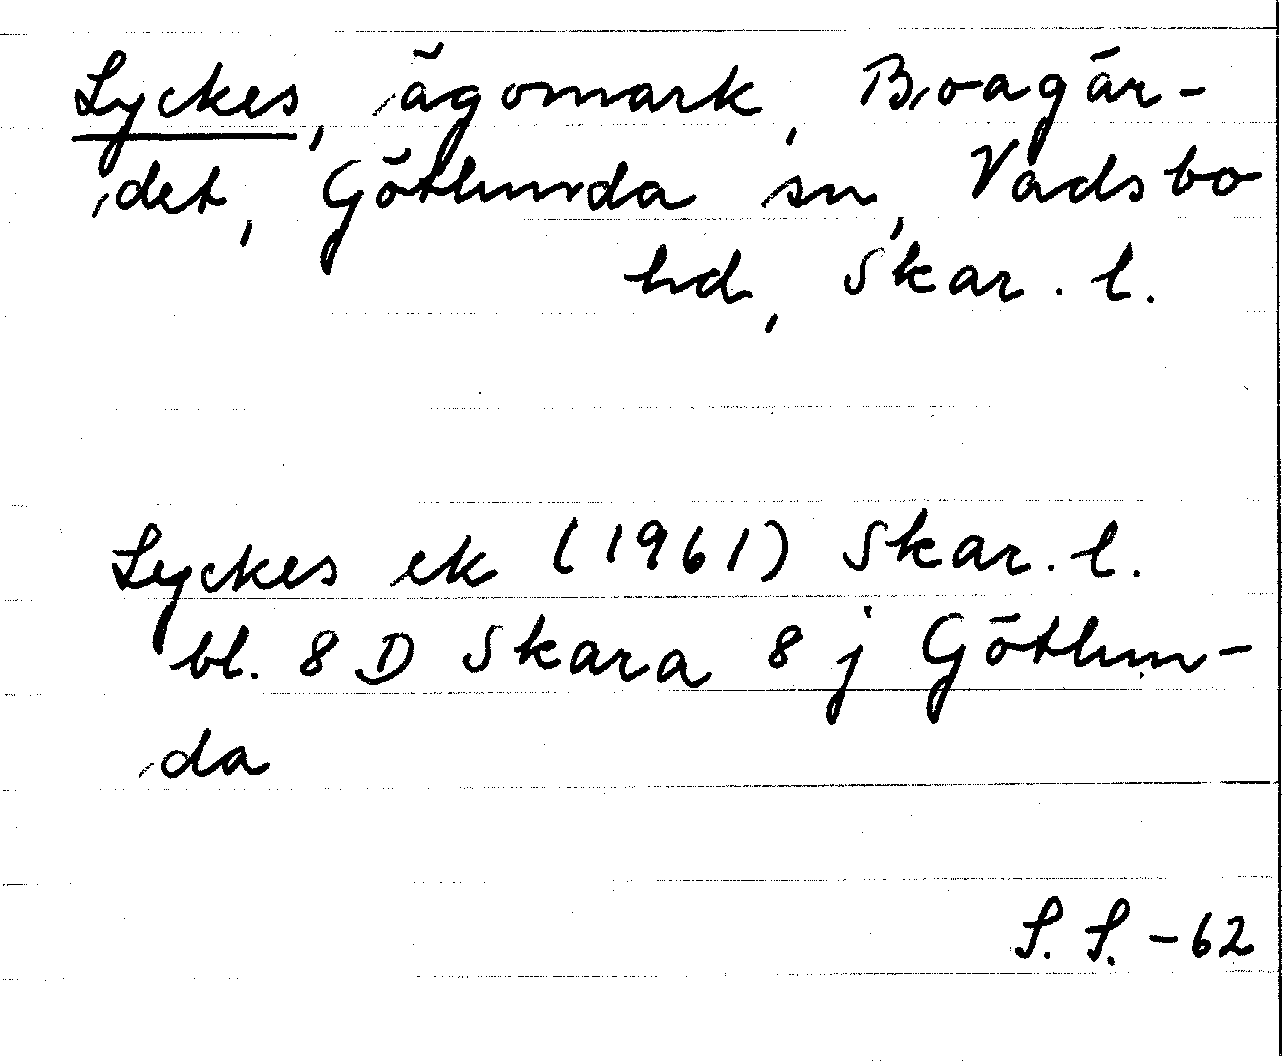 Lyckes, ägomark, Boagär-
det, Götlunda sn, Vadsbo
hd, Skar. l.
Lyckes ek (1961) Skar. l.
bl. 8 D Skara 8 j Götlun-
da
S. S. -62